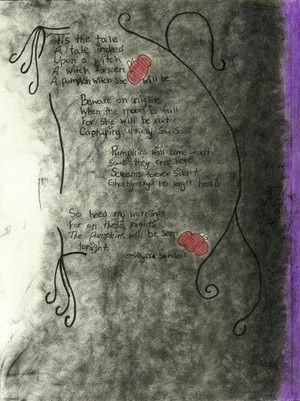 Tis the tale
A tale indeed
Upon a witch
A witch forseen
A pumpkin witch she will be
Beware on nights
When the moon is full
For she will be out
Capturing unruly souls
Pumpkins will come out
Souls they once were
Screams forever silent
Ghostly no longer heard
So heed my warnings
For on these nights
The pumpkins will be seen
tonight.
~Alyssa Sanders